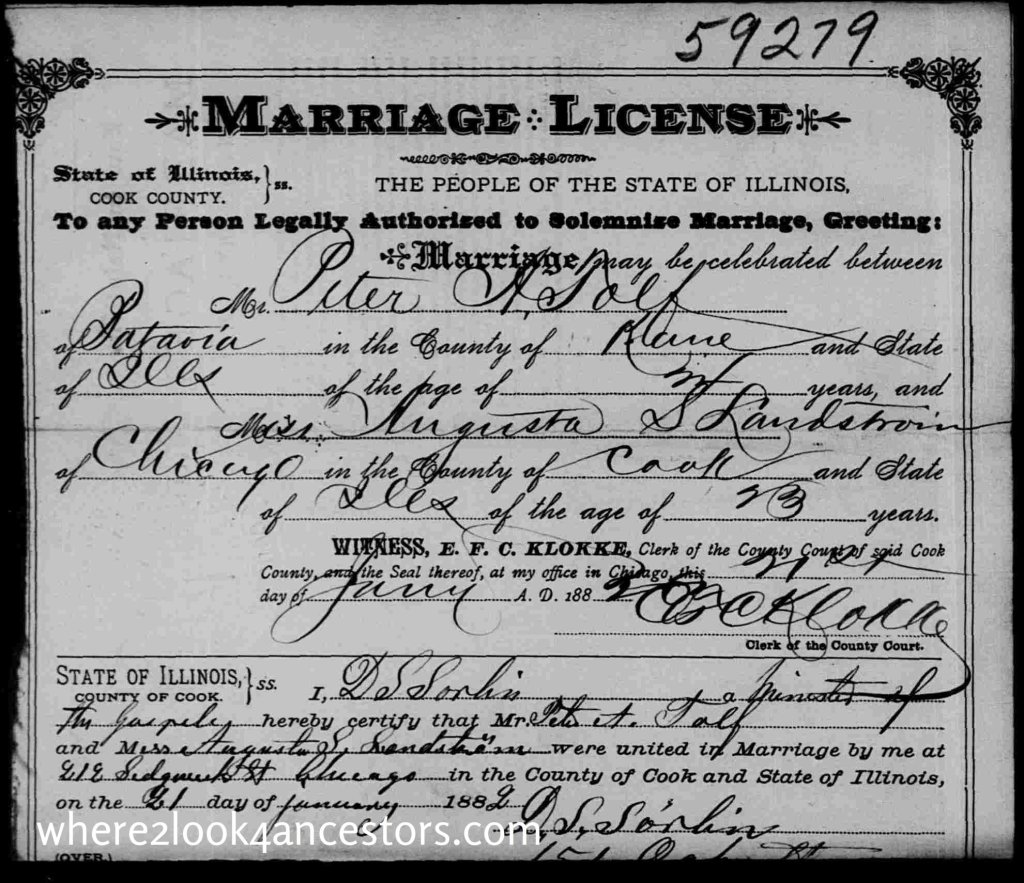 59279
MARRIAGE LICENSE
State of Illinois, COOK COUNTY. } ss. THE PEOPLE OF THE STATE OF ILLINOIS,
To any Person Legally Authorized to Solemnize Marriage, Greeting:
Marriage may be celebrated between
Mr. Peter A. Tolf
of Batavia in the County of Kane and State
of Ills of the age of years, and
Miss Augusta S Landstrom
of Chicago in the County of Cook and State
of Ills of the age of 23 years.
WITNESS, E. F. C. KLOKKE, Clerk of the County Court of said Cook
County, and the Seal thereof, at my office in Chicago, this 21st
day of Jany A. D. 1882
E F C Klokke
Clerk of the County Court.
STATE OF ILLINOIS, COUNTY OF COOK. } ss. I, D S Sorlin a Minister of
the Gospel hereby certify that Mr. Peter A. Tolf
and Miss Augusta S. Landström were united in Marriage by me at
212 Sedgwick St Chicago in the County of Cook and State of Illinois,
on the 21 day of january 1882 D. S. Sörlin
where2look4ancestors.com
(OVER.) 151